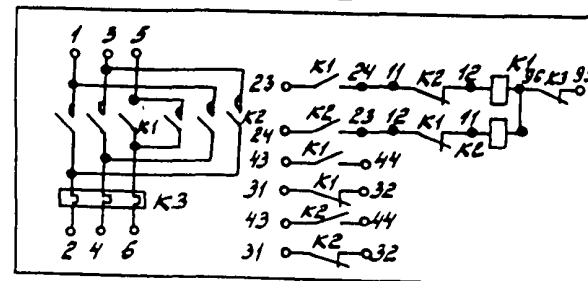 1 3 5
K1 K2
K3
2 4 6
23 K1 24 11 K2 12 K1 96 K3 95
24 K2 23 12 K1 11 K2
43 K1 44
31 K1 32
43 K2 44
31 K2 32